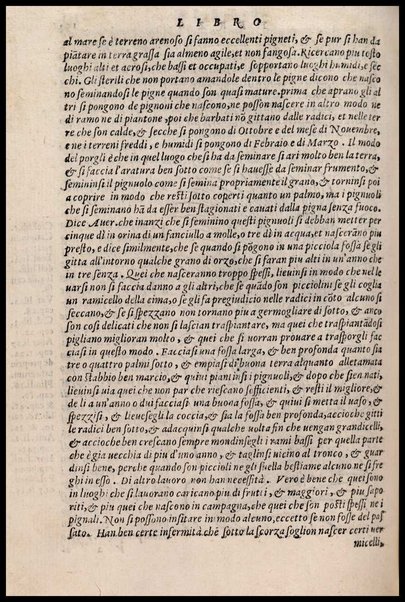 LIBRO
al mare se è terreno arenoso si fanno eccellenti pigneti, & se pur si han da
piātare in terra grassa sia almeno agile, et non fangosa. Ricercano piu testo
luoghi alti et acrosi, che bassi et occupati, e sopportano luoghi humidi, e sec
chi. Gli sterili che non portano amandole dentro le pigne dicono che nasco
no seminandosi le pigne quando son quasi mature. prima che aprano gli al
tri si pongono de pignoni che nascono, ne posson nascere in altro modo ne
di ramo ne di piantone, poi che barbati nō gittano dalle radici, et nelle ter
re che son calde, & secche si pongono di Ottobre e del mese di Nouembre,
e ne i terreni freddi, e humidi si pongono di Febraio e di Marzo. Il modo
del porgli è che in quel luogo che si ha da seminare si ari molto ben la terra,
& si faccia l'aratura ben sotto come se si hauesse da seminar frumento, &
seminisi il pignuolo come si semina propriamente il grano, & tornisi poi
a coprire in modo che resti sotto coperti quanto un palmo, ma i pignuoli
che si seminano hā da esser ben stagionati e cauati dalla pigna senza fuoco.
Dice Auer. che inanzi che si seminino questi pignuoli si debban metter per
cinque dì in orina di un fanciullo a molle, o tre dì in acqua, et nasceranno piu
presto, e dice similmente, che se quando si pōgono in una picciola fossa se gli
gitta all'intorno qualche grano di orzo, che si faran piu alti in un'anno che
in tre senza. Quei che nasceranno troppo spessi, lieuinsi in modo che nelle
uarsi non si faccia danno a gli altri, che se quādo son picciolini se gli coglia
un ramicello della cima, o se gli fa pregiudicio nelle radici in cōto alcuno si
seccano, & se si spezzano non tornano piu a germogliare di sotto, & anco
son così delicati che non si lascian traspiantare, ma quei che traspiantādosi
pigliano miglioran molto, & e quei che si uorran prouare a trasporgli fac
ciasi in questo modo. Facciasi una fossa larga, & ben profonda quanto sia
tre o quattro palmi sotto, & empiasi di buona terra alquanto alletamata
con stabbio ben marcio, & quiui pianti si i pignuoli, & dopo che sien nati,
lieuinsi uia quei che non par che riescano sofficienti, & resti il migliore, &
de lì a un'anno o dui facciasi una buona fossa, & quiui si metta il uaso, &
spezzisi, & lieuesegli la coccia, & sia la fossa ben profonda, accioche gitti
le radici ben sotto, & adacquinsi qualche uolta fin che uengan grandicelli,
& accioche ben crescano sempre mondinsegli i rami bassi per quella parte
che è gia uecchia di piu d'uno anno, & taglinsi uicino al tronco, & guar
dinsi bene, perche quando son piccioli ne gli stuella bestiame alcuno ne si fre
ghi in esso. Di altro lauoro non han necessità. Vero è bene che quei sono
in luoghi che si lauorano caricano piu di frutti, & maggiori, & piu sapo
riti, & piu quei che nascono in campagna, che quei che son posti spessi ne i
pignali. Non si possono insitare in modo alcuno, eccetto se non fosse del pas
sato. Han ben certe infermità che sotto la scorza soglion nascer certi uer
micelli,